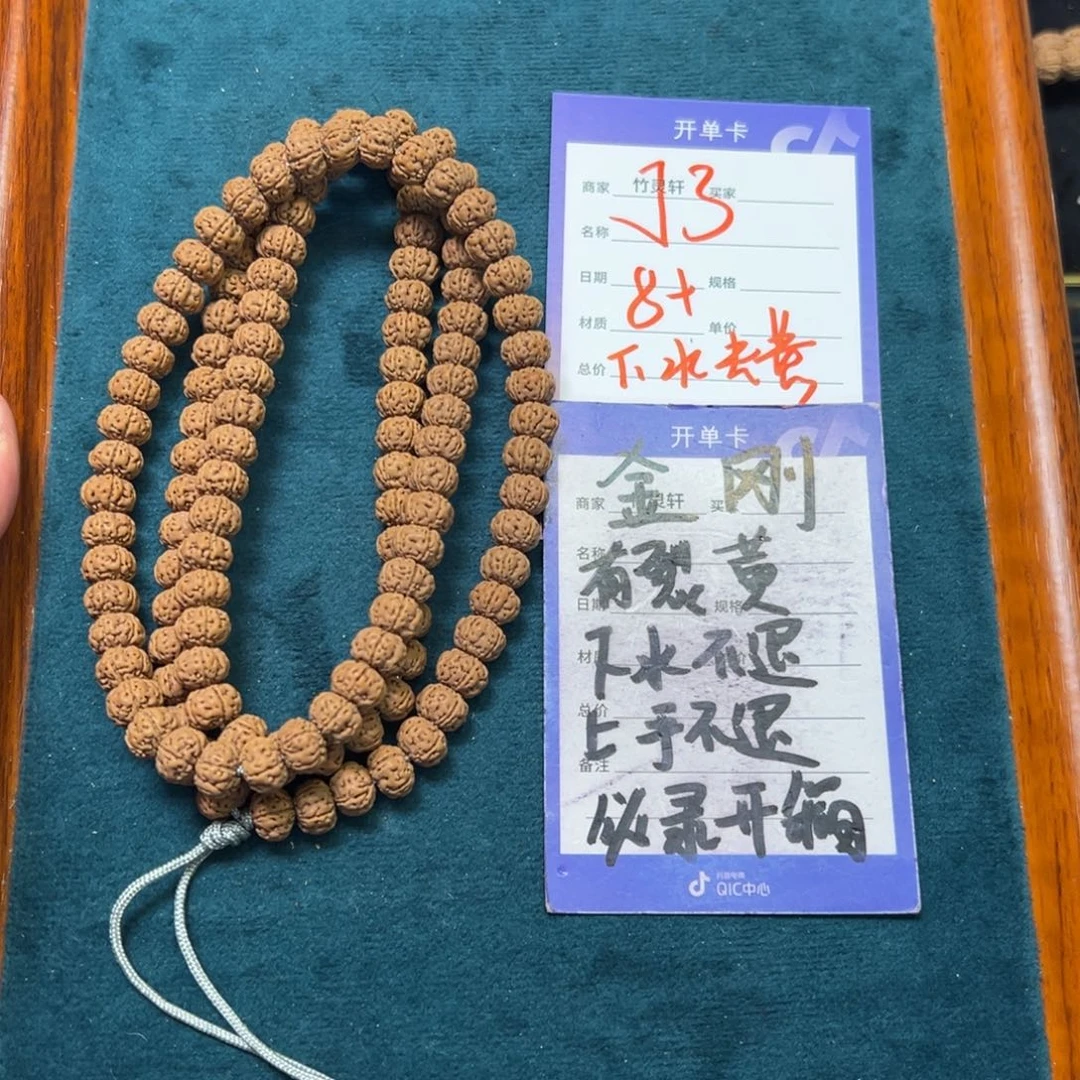 开单卡
商家 竹灵轩 买家
J3
名称
日期 8+ 规格
材质 单价
总价 下水去黄
开单卡
金刚
商家 灵轩 买
名称
有裂黄
日期 规格
下水不退
材 价
总价
上手不退
备注
必录开箱
抖音电商
QIC中心